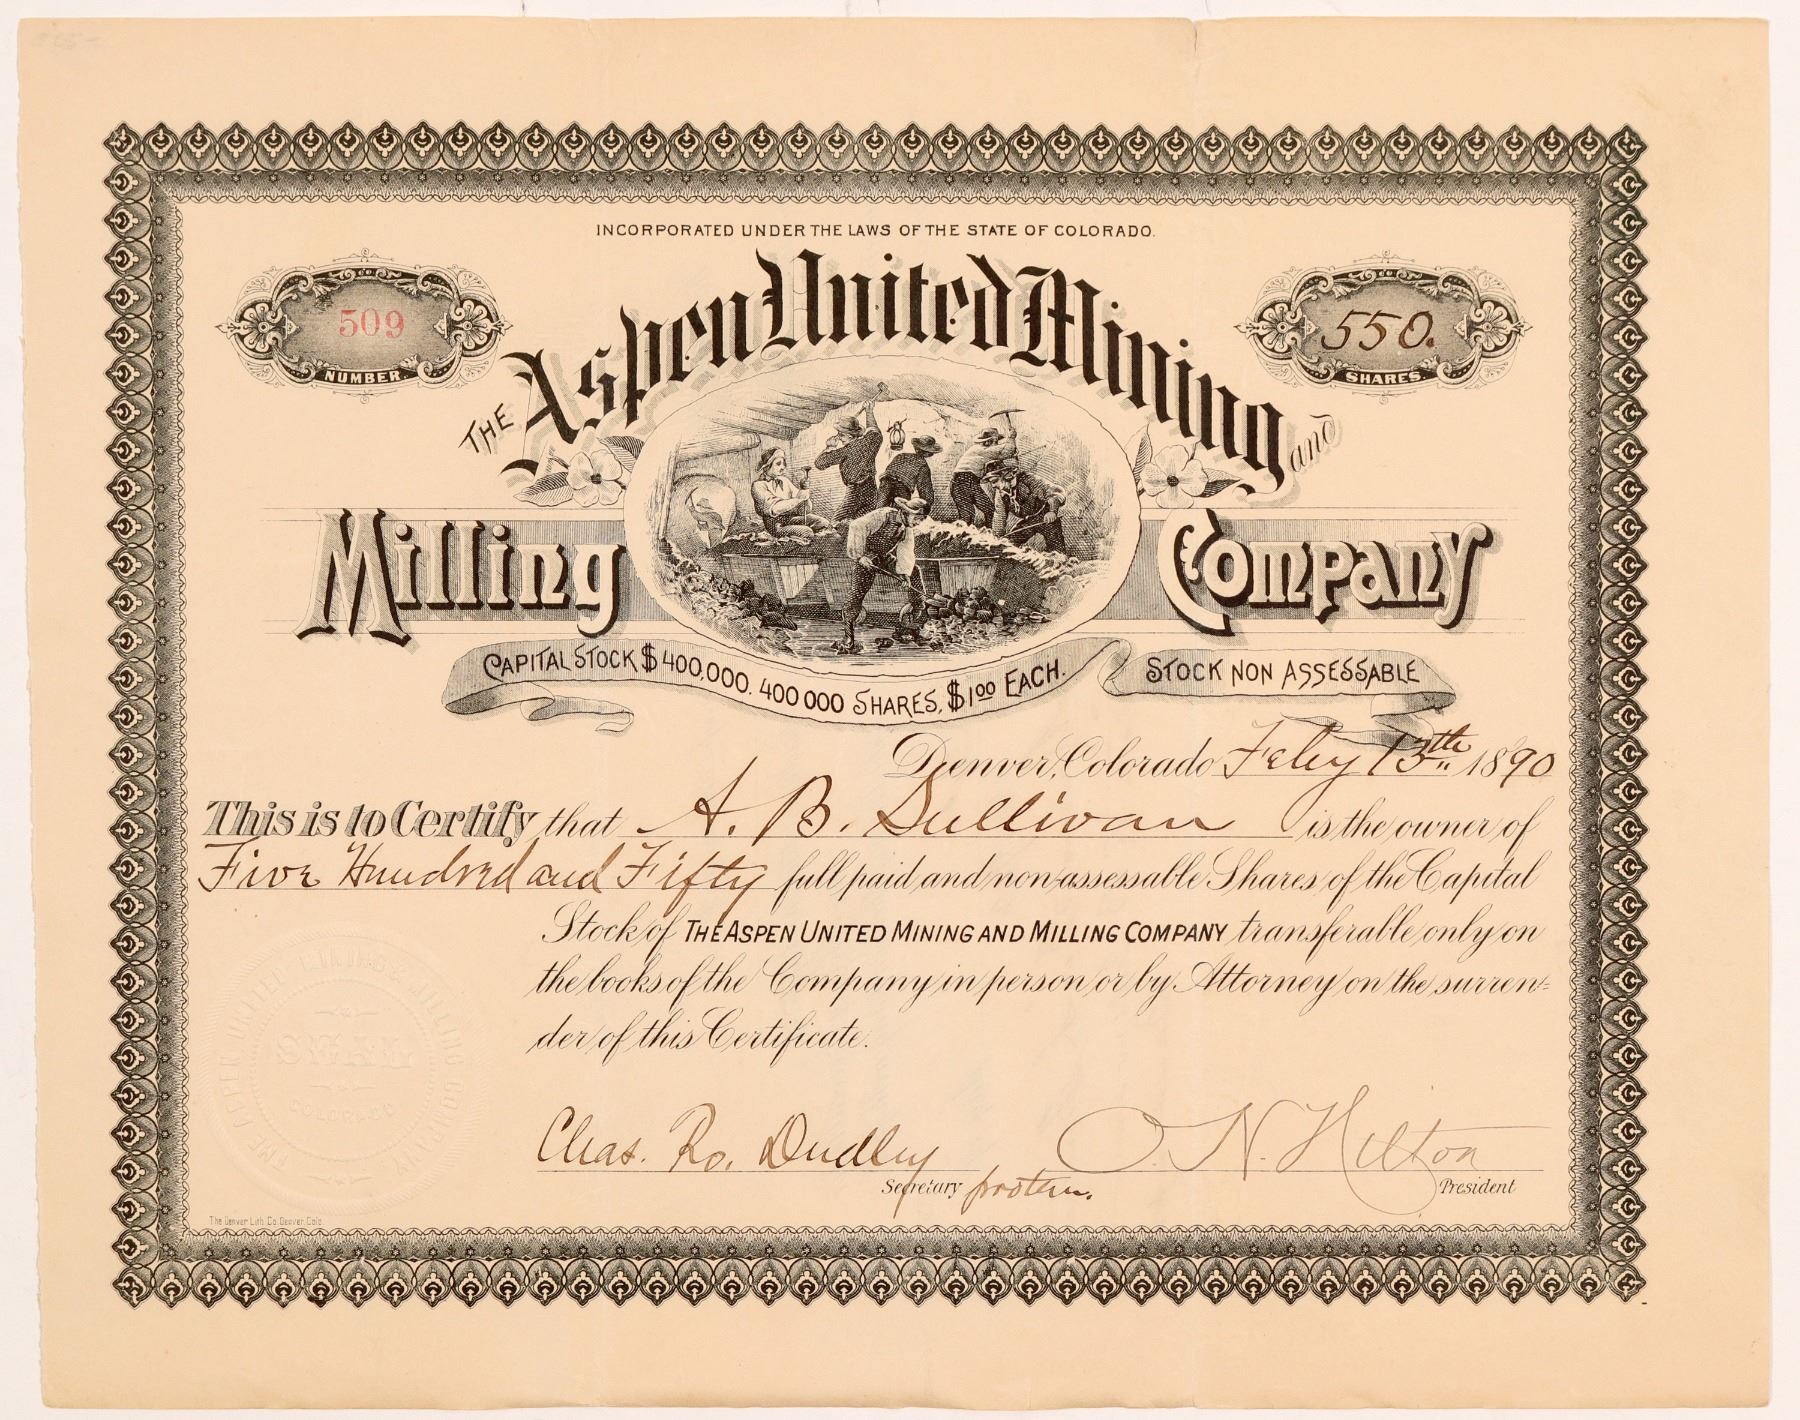 INCORPORATED UNDER THE LAWS OF THE STATE OF COLORADO.
509
NUMBER.
550.
SHARES.
THE Aspen United Mining and
Milling Company
CAPITAL STOCK $400,000. 400 000 SHARES, $1 00 EACH.
STOCK NON ASSESSABLE
Denver, Colorado Feby 13th 1890
This is to Certify that A. B. Sullivan is the owner of
Five Hundred and Fifty full paid and non assessable Shares of the Capital
Stock of THE ASPEN UNITED MINING AND MILLING COMPANY transferable only on
the books of the Company in person or by Attorney on the surren=
der of this Certificate.
THE ASPEN UNITED MINING & MILLING COMPANY
SEAL
COLORADO
Chas. Ro. Dudley
O. N. Hilton
Secretary protem.
President
The Denver Lith. Co. Denver, Colo.